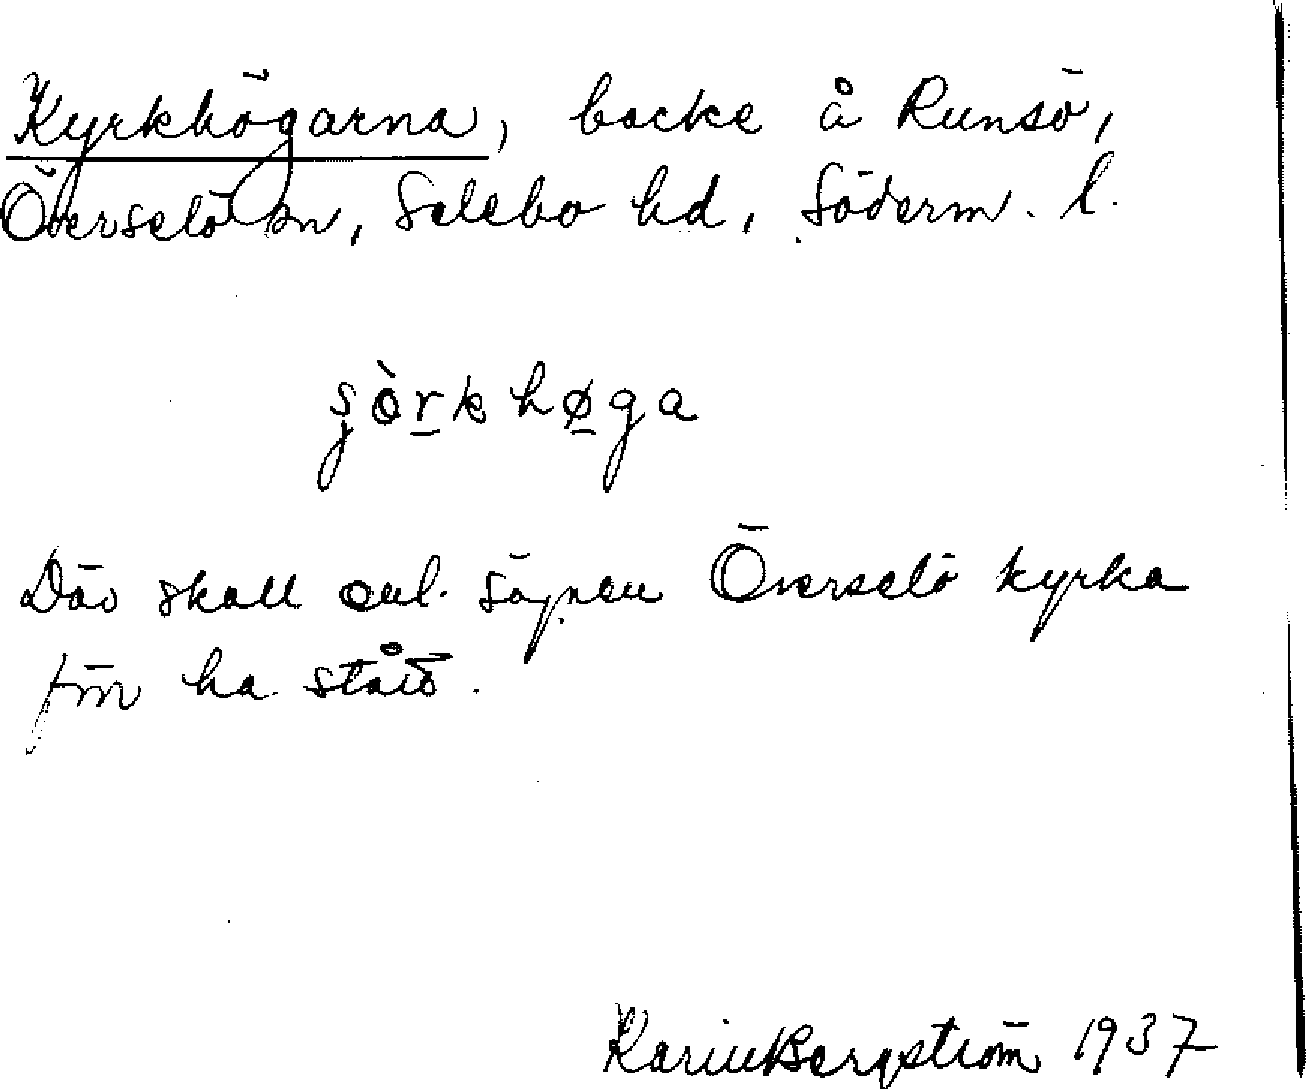 Kyrkhögarna, backe å Runsö,
Överselö sn, Selebo hd, Söderm. l.
høga
Där skall enl. sägnen Överselö kyrka
förr ha stått.
Karin Bergström 1937